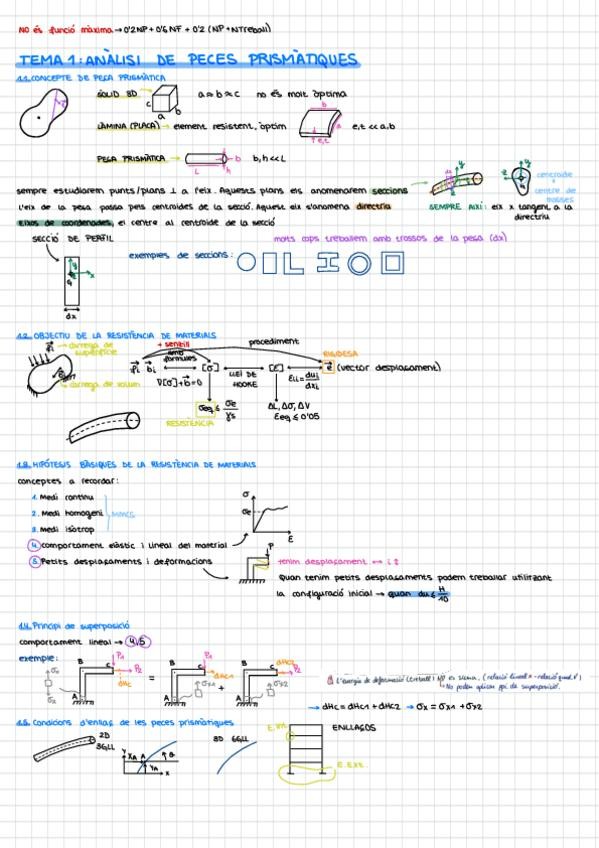 NO és funció màxima → 0'2NP + 0'6NF + 0'2 (NP + NTreball)
TEMA 1: ANÀLISI DE PECES PRISMÀTIQUES
1.1. CONCEPTE DE PEÇA PRISMÀTICA
SÒLID 3D
c
b
a
a ≈ b ≈ c no és molt òptima
LÀMINA (PLACA) → element resistent, òptim
b
e,t
e,t << a,b
PEÇA PRISMÀTICA →
L
b
h
b,h << L
sempre estudiarem punts/plans ⊥ a l'eix. Aquests plans els anomenarem seccions
centroide
centre de masses
l'eix de la peça passa pels centroides de la secció. Aquest eix s'anomena directriu
SEMPRE AIXÍ: eix x tangent a la directriu
Eixos de coordenades, el centre al centroide de la secció
SECCIÓ DE PERFIL
molts cops treballem amb trossos de la peça (dx)
exemples de seccions:
dx
1.2. OBJECTIU DE LA RESISTÈNCIA DE MATERIALS
càrrega de superfície
càrrega de volum
+ senzill
amb fórmules
procediment
RIGIDESA
[σ]
LLEI DE HOOKE
[E]
(vector desplaçament)
∇[σ]+b=0
σeq ≤ σe/γs
RESISTÈNCIA
ΔL, Δσ, ΔV
Eeq ≤ 0'05
1.3. HIPÒTESIS BÀSIQUES DE LA RESISTÈNCIA DE MATERIALS
conceptes a recordar:
1. Medi continu
2. Medi homogeni
3. Medi isòtrop
MMCS
4. comportament elàstic i lineal del material
5. Petits desplaçaments i deformacions
σ
σe
E
P
tenim desplaçament
Quan tenim petits desplaçaments podem treballar utilitzant
la configuració inicial → quan du ≤ H/10
1.4. Principi de superposició
comportament lineal → 4 y 5
exemple:
B
C
P1
P2
dHc
A
=
B
C
dHc1
A
+
B
C
dHc2
A
L'energia de deformació (treball) NO es suma,
No podem aplicar ppi de superposició.
→ dHc = dHc1 + dHc2 → σx = σx1 + σx2
1.5. Condicions d'enllaç de les peces prismàtiques
2D
3GLL
Y
XA
A
YA
θ
X
3D 6GLL
E. Int.
ENLLAÇOS
E. Ext.